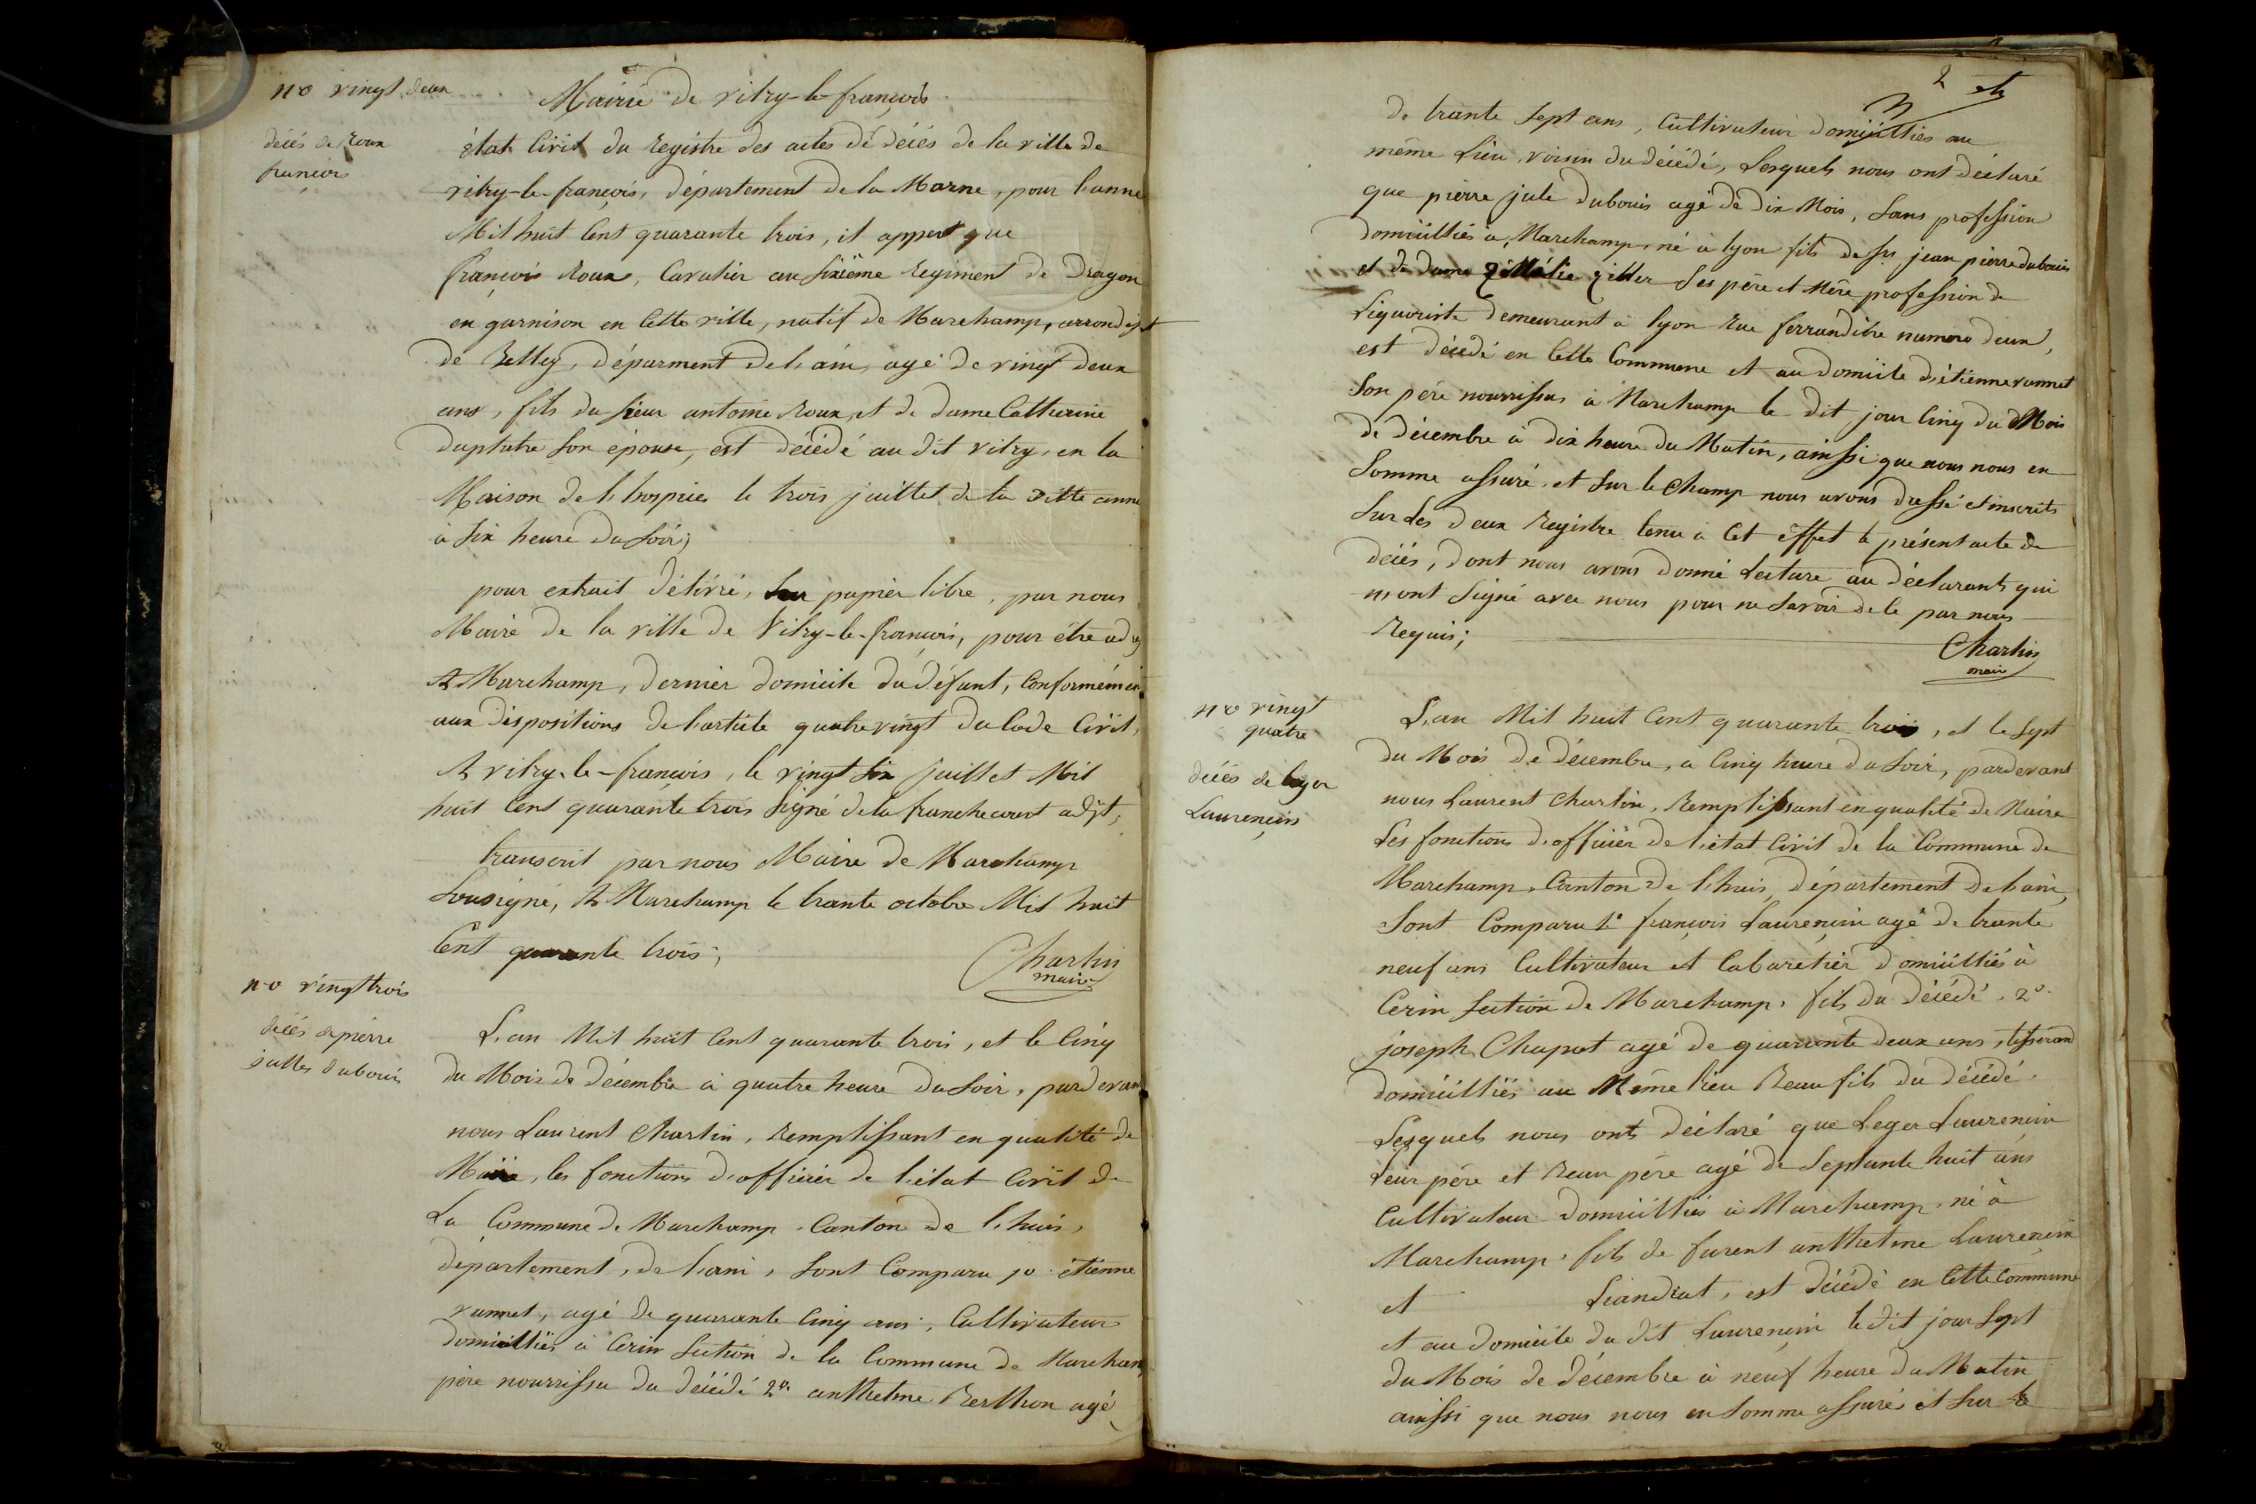 no vingt deux
décés de Roux
françois
Mairie de vitry-le-françois
état Civil du Registre des actes de décés de la ville de
vitry-le-françois, département de la Marne, pour l'anne
Mil huit Cent quarante trois, il appert que
françois Roux, Cavalier au sixième Regiment de Dragon
en garnison en Cette ville, natif de Marchamp, arrond.st
de Belley, déparment de l'ain, agé de vingt deux
ans, fils du sieur antoine Roux, et de dame Catherine
son épouse, est décédé au dit vitry, en la
Maison de l'hospice le trois juillet de la ditte anne
à six heure du soir;
pour extrait délivré, sur papier libre, par nous
Maire de la ville de Vitry-le-françois, pour être
A Marchamp, dernier domicile du défunt, Conformémen
aux dispositions de l'article quatre vingt du Code Civil,
A vitry-le-françois, le vingt six juillet Mil
huit Cent quarante trois Signé de la franchecourt adjt,
transcrit par nous Maire de Marchamp
Sousigné, A Marchamp le trante octobre Mil huit
Cent quarante trois;
Charlin
maire
no vingt trois
décés de pierre
julles dubouis
L'an Mil huit Cent quarante trois, et le Cinq
du Mois de décembre à quatre heure du soir, pardevan
nous Laurent Charlin, Remplissant en qualité de
Maire, les fonctions d'officier de l'état Civil de
La Commune de Marchamp Canton de l'huis,
département, de l'ain, sont Comparu 1o étienne
vannet, agé de quarante Cinq ans, Cultivateur
domicillié à Cerin section de la Commune de Marcham
père nourrissu du décédé 2o anthelme Berthon agé
2
de trante sept ans, Cultivateur domicilliés au
même Lieu, voisin du décédé, Lesquels nous ont déclaré
que pierre jule dubouis agé de dix Mois, sans profession
domicilliés à Marchamp, né à lyon fils de sr jean pierre dubouis
et de dame ses père et Mère profession de
Liquoriste demeurant à lyon Rue ferrandière numero deux,
est décédé en Cette Commune et au domicile d'étienne vannet
son père nourrissus à Marchamp le dit jour Cinq du Mois
de décembre à dix heure du Matin, ainssi que nous nous en
somme assuré, et sur le Champ nous avons dressé et inscrits
sur les deux Registre tenu à Cet effet le présent acte de
décés, dont nous avons donné Lecture au déclarants qui
n'ont signé avec nous pour ne savoir de le par nous
Requis;
Charlin
maire
no vingt
quatre
décés de leger
Laurençin
L'an Mil huit Cent quarante trois, et le sept
du Mois de décembre, a Cinq heure du soir, pardevant
nous Laurent Charlin, Remplissant en qualité de Maire
Les fonctions d'officier de l'état Civil de la Commune de
Marchamp, Canton de l'huis, département de l'ain,
sont Comparu 1o françois Laurençin agé de trante
neuf ans Cultivateur et Cabaretier domicilliés à
Cerin section de Marchamp, fils du décédé, 2o
joseph Chaput agé de quarante deux ans, tisserand
domicilliés au Même Lieu Beau fils du décédé.
Lesquels nous onts déclaré que Leger Laurençin
Leur père et Beau père agé de septante huit ans
Cultivateur domicilliés à Marchamp né à
Marchamp, fils de furent anthelme Laurençin
et Liandrat, est décédé en Cette Commune
et au domicile du dit Laurençin le dit jour sept
du Mois de décembre à neuf heure du Matin
ainssi que nous nous en somme assurés et sur le